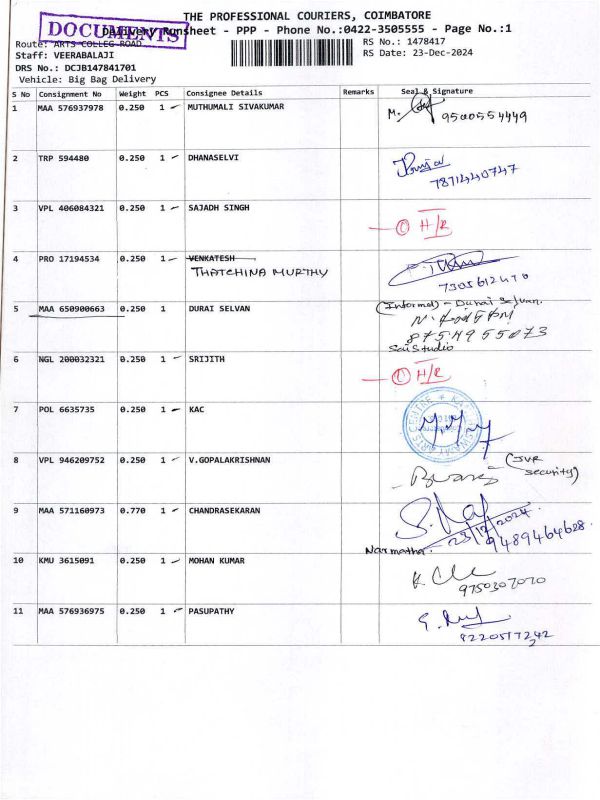 THE PROFESSIONAL COURIERS, COIMBATORE
DOCUMENTS
Delivery Runsheet - PPP - Phone No.:0422-3505555 - Page No.:1
Route: ARTS COLLEG ROAD RS No.: 1478417
Staff: VEERABALAJI RS Date: 23-Dec-2024
DRS No.: DCJB147841701
Vehicle: Big Bag Delivery
S No Consignment No Weight PCS Consignee Details Remarks Seal & Signature
1 MAA 576937978 0.250 1 MUTHUMALI SIVAKUMAR M. 9500554449
2 TRP 594480 0.250 1 DHANASELVI 7871440747
3 VPL 406084321 0.250 1 SAJADH SINGH H/R
4 PRO 17194534 0.250 1 VENKATESH
THATCHINA MURTHY 7305612470
5 MAA 650900663 0.250 1 DURAI SELVAN (Informed) - Durai Selvan.
8754955073
Sai Studio
6 NGL 200032321 0.250 1 SRIJITH H/R
7 POL 6635735 0.250 1 KAC ARTS CENTRE
8 VPL 946209752 0.250 1 V.GOPALAKRISHNAN (JVR security)
9 MAA 571160973 0.770 1 CHANDRASEKARAN 23/12/2024
Narmatha 9489464628
10 KMU 3615091 0.250 1 MOHAN KUMAR 9750307070
11 MAA 576936975 0.250 1 PASUPATHY